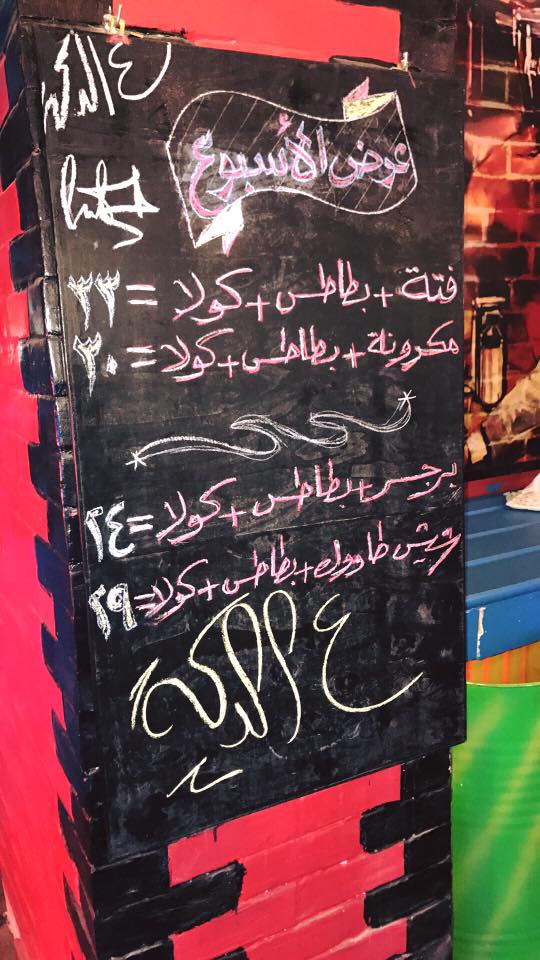 ع الدكة
عرض الأسبوع
فتة + بطاطس + كولا = ٣٣
مكرونة + بطاطس + كولا = ٣٠
برجر + بطاطس + كولا = ٢٤
شيش طاووك + بطاطس + كولا = ٢٩
ع الدكة